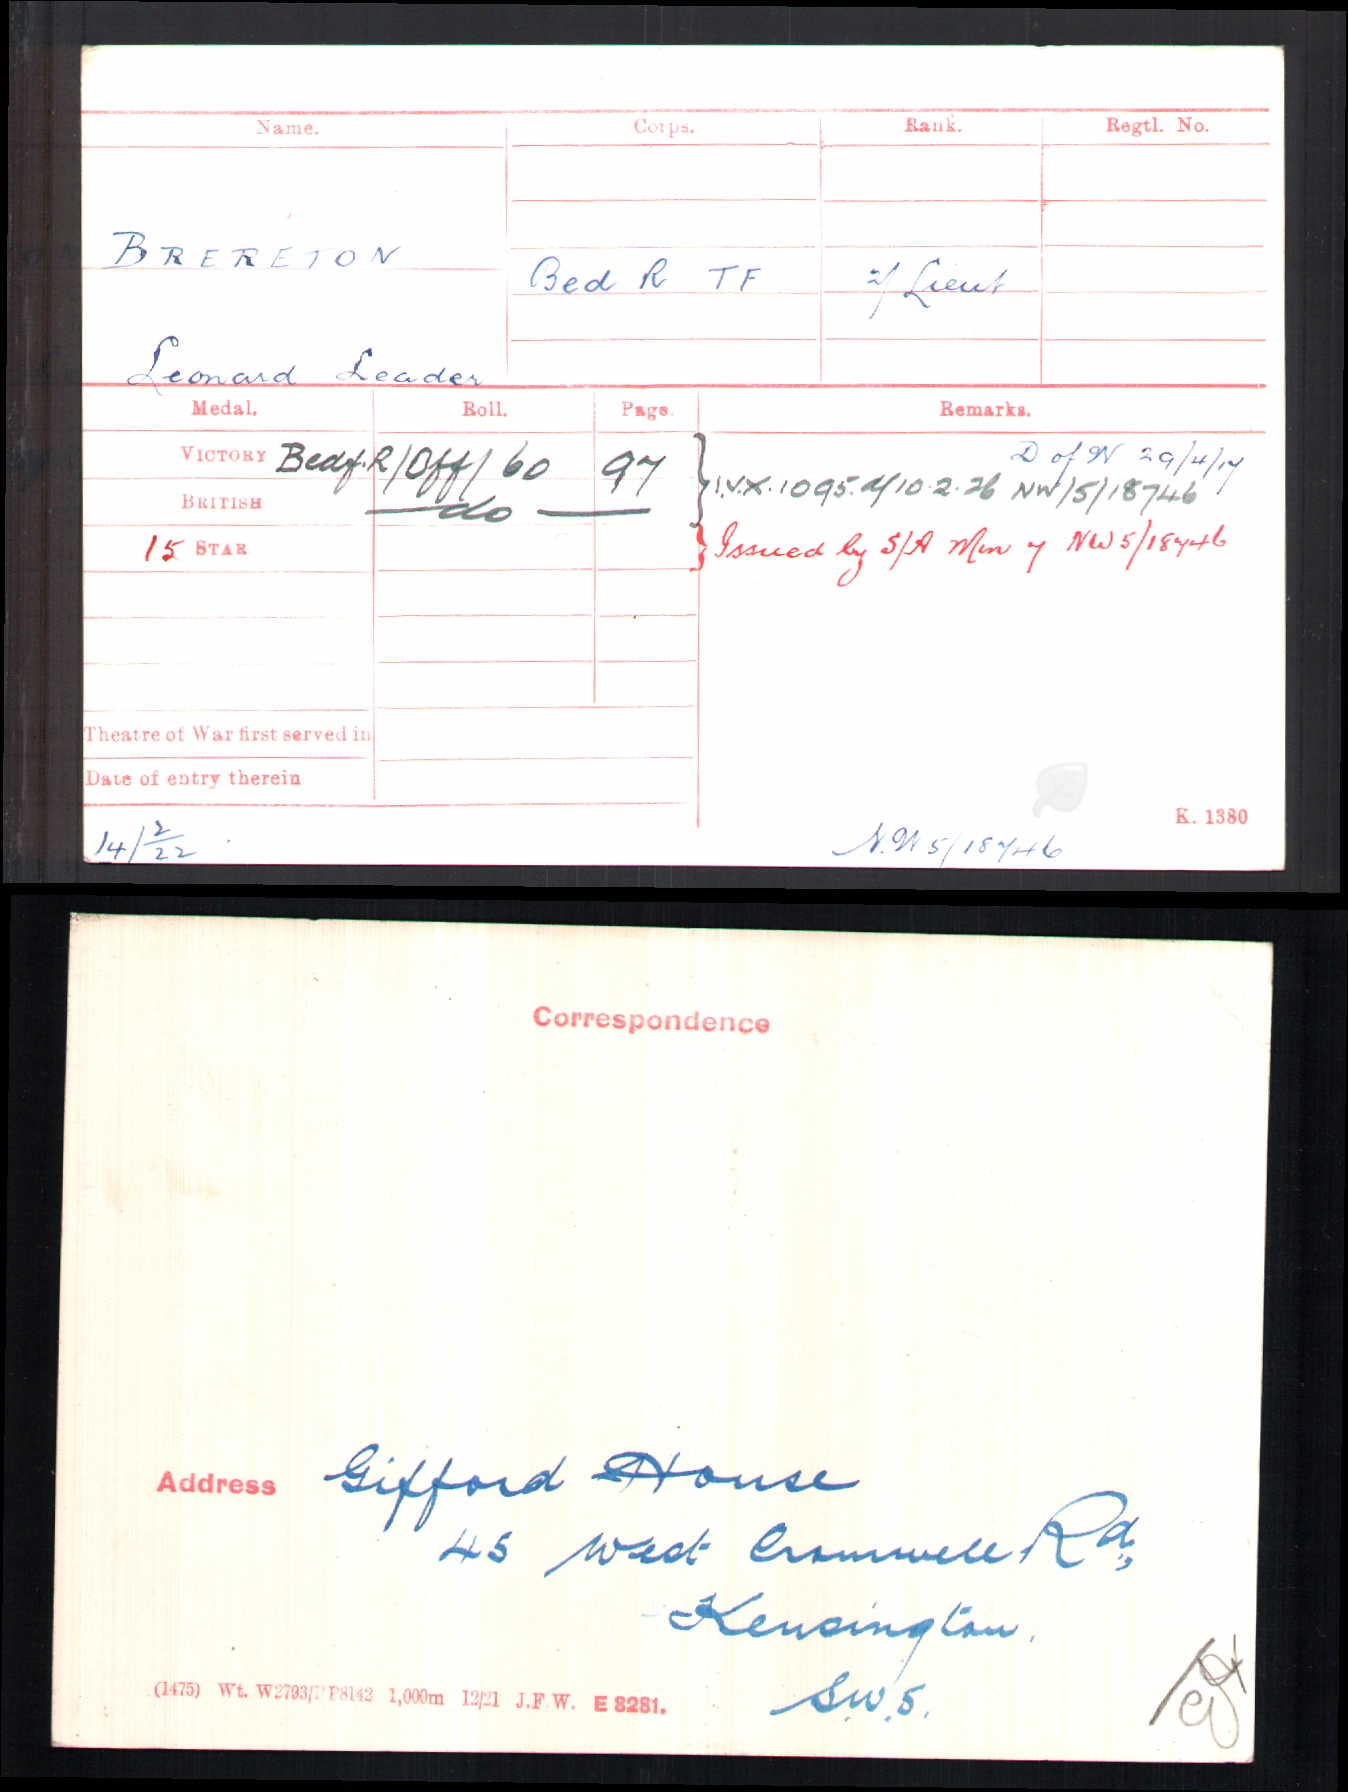 Name. Corps. Rank. Regtl. No.
BRERETON
Bed R TF 2/Lieut
Leonard Leader
Medal. Roll. Page. Remarks.
D of W 29/4/17
VICTORY Bedf.R/Off/60 97 I.V.X. 1095. d/10.2.26 NW/5/18746
BRITISH do
15 STAR Issued by S/A Mm y NW5/18746
Theatre of War first served in
Date of entry therein
K. 1380
14/2/22 N.W5/18746
Correspondence
Address Gifford House
45 West Cromwell Rd,
Kensington.
S.W.5.
(1475) Wt. W2793/ P8142 1,000m 12/21 J.F.W. E 8281.